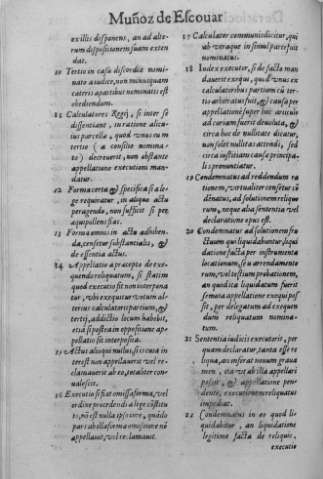 Muñoz de Escouar
ex illis disponens, an ad alte-
rum dispositionem suam exten
dat.
10 Tertio in casu discordiæ nomi-
nato a iudice, non nunquam
cateris apartibus nominatis est
obediendum.
11 Calculatores Regij, si inter se
dissentiant, in ratione alicu
ius parcella, quod vnus cum
tertio (a consilio nomina-
to) decreuerit, non obstante
appellatione executioni man-
datur.
12 Forma certa & specifica si a le-
ge requiratur, in aliquo actu
peragendo, non sufficit si per
æquipollens fiat.
13 Forma omnis in actu adhiben-
da, censetur substantialis, &
de essentia actus.
14 Appellatio a præcepto de exe-
quendo reliquatum, si statim
quod executio sit non interpona
tur, vbi exequutur votum al-
terius calculatoris partium, &
tertij, addictio locum habebit,
etiã si postea in oppositione ap-
pellatio sit interposita.
15 Actus alioqui nullus, si is cuius in
terest non appellauerit vel re-
clamauerit ab eo, redditur con-
ualescit.
16 Executio si fiat omissa forma, vel
ordine procedendi a lege cõstitu-
to, nõ est nulla ipso iure, quãdo
pars ab illa forma omissione nõ
appellauit, vel reclamauit.
17 Calculator communis dicitur, qui
ab vtraque in simul parte fuit
nominatus.
18 Iudex executor, si de facto man
dauerit exequi, quod vnus ex
calculatoribus partium cũ ter-
tio arbitratus fuit, & causa per
appellationẽ super hoc articulo
ad curiam fuerit deuoluta, &
circa hoc de nullitate dicatur,
non solet nullitas attendi, sed
circa iustitiam causæ principa-
lis pronuntiatur.
19 Condemnatus ad reddendum ra
tionem, vt vulgliter cõsetur cõ
dẽnatus, ad solutionem reliquo
rum, neque alia sententia vel
declaratione opus est.
20 Condemnatur ad solutionem fru
ctuum quo liquidabuntur, liqui
datione facta per instrumenta
locationum, seu arrendamento
rum, vel testium probationem,
an quod ita liquidatum fuerit
semota appellatione exequi pos
sit, per delegatum ad exequen
dum reliquatum nomina-
tum.
21 Sententia iudicis executoris, per
quam declaratur, tanta esse re
liqua, an inferat nouum graua
men, vt ab ista aliqua appellari
possit, & appellatione pen-
dente, executionem reliquatus
impediat.
22 Condemnatus in eo quod li-
quidabitur, an liquidatione
legitime facta de reliquis,
executio